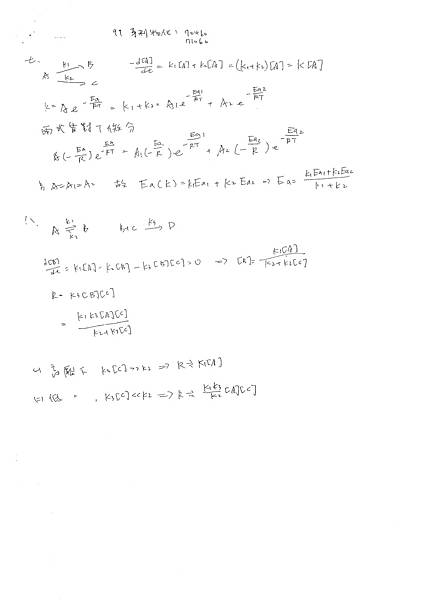 七、 A k1→ B
k2→ C
-d[A]/dt = k1[A] + k2[A] = (k1+k2)[A] = k[A]
k = A e^(-Ea/RT) = k1 + k2 = A1 e^(-Ea1/RT) + A2 e^(-Ea2/RT)
兩次皆對T微分
A(-Ea/R) e^(-Ea/RT) = A1(-Ea1/R) e^(-Ea1/RT) + A2(-Ea2/R) e^(-Ea2/RT)
A=A1=A2 故 Ea(k) = k1Ea1 + k2Ea2 ⇒ Ea = (k1Ea1+k2Ea2)/(k1+k2)
八、 A k1⇌k2 B B+C k3→ D
d[B]/dt = k1[A] - k2[B] - k3[B][C] = 0 ⇒ [B] = k1[A]/(k2+k3[C])
R = k3[B][C]
= k1k3[A][C]/(k2+k3[C])
(1) 高壓下 k3[C]>>k2 ⇒ R ≒ k1[A]
(2) 低 〃 , k3[C]<<k2 ⇒ R ≒ (k1k3/k2)[A][C]